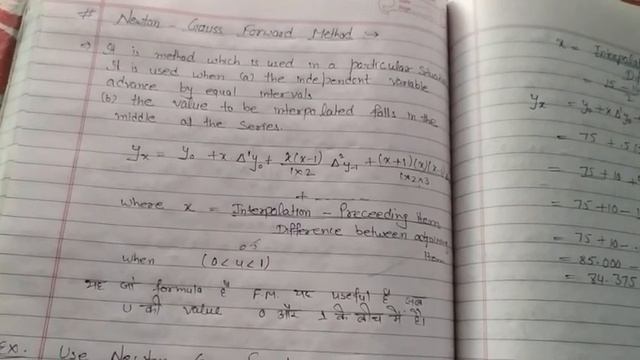 # Newton - Gauss Forward Method →
→ It is method which is used in a particular situation
It is used when (a) the independent variable
advance by equal intervals
(b) the value to be interpolated falls in the
middle of the series.
yx = y0 + x Δ¹y0 + x(x-1)/1×2 Δ²y-1 + (x+1)(x)(x-1)/1×2×3
+ - - - - - -
where x = Interpolation - Preceeding Item
Difference between adjoining
Item
0.5
when (0 < u < 1)
यह जो formula है F.M. यह useful है जब
U की value 0 और 1 के बीच में है।
Ex. Use New
x = Interpolat
= 15
yx = y0 + x Δ¹
= 75 + .5(
= 75 + 10 +
= 75 + 10 -
= 75 + 10 -
= 85.000 -
= 84.375